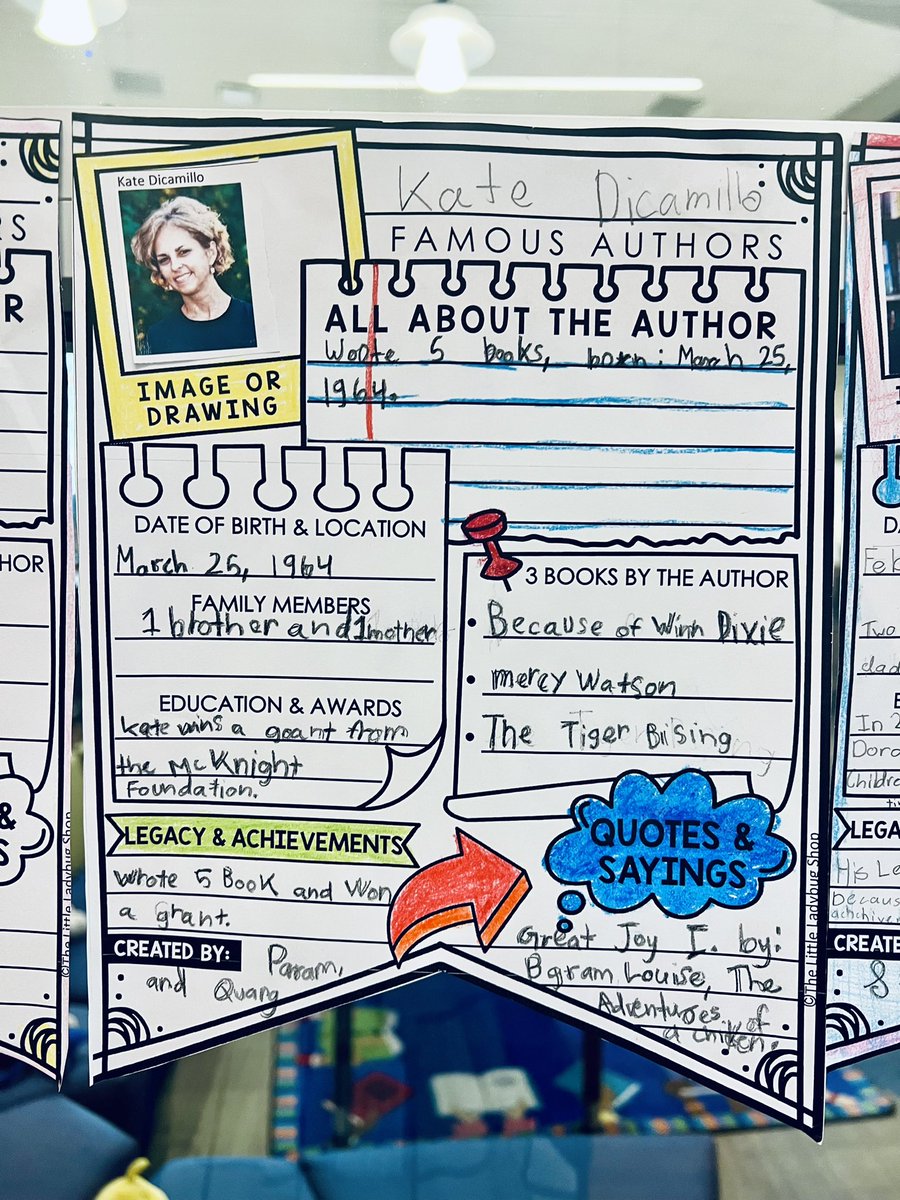 Kate Dicamillo
Kate Dicamillo
FAMOUS AUTHORS
IMAGE OR
DRAWING
ALL ABOUT THE AUTHOR
Wrote 5 books, born: March 25,
1964.
DATE OF BIRTH & LOCATION
March 25, 1964
FAMILY MEMBERS
1 brother and 1 mother
EDUCATION & AWARDS
Kate wins a grant from
the McKnight
Foundation.
3 BOOKS BY THE AUTHOR
• Because of Winn Dixie
• mercy Watson
• The Tiger Bising
LEGACY & ACHIEVEMENTS
wrote 5 Book and Won
a grant.
QUOTES &
SAYINGS
Great Joy I. by:
Bgram Louise, The
Adventures of
a chiken.
CREATED BY: Param,
and Quang
©The Little Ladybug Shop
©The Little Ladybug Shop
RS
R
HOR
&
S
Feb
Two
dad
In 2
Children
LEGA
His Le
becaus
achchiver
CREATE
S